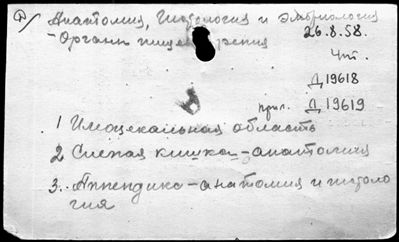 Анатомия, Гистология и эмбриология
-Органы пищеварения
26.8.58.
Чт.
Д 19618
прил. Д 19619
1 Илеоцекальная область
2 Слепая кишка-анатомия
3. Аппендикс-анатомия и гистоло
гия